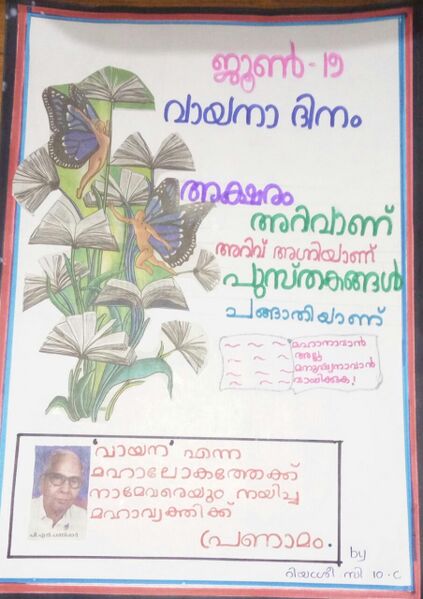 ജൂൺ - 19
വായനാ ദിനം
അക്ഷരം
അറിവാണ്
അറിവ് അഗ്നിയാണ്
പുസ്തകങ്ങൾ
ചങ്ങാതിയാണ്
മഹാനാവാൻ
അല്ല
മനുഷ്യനാവാൻ
വായിക്കുക!
'വായന' എന്ന
മഹാലോകത്തേക്ക്
നാമേവരെയും നയിച്ച
മഹാവ്യക്തിക്ക്
പ്രണാമം.
പി.എൻ.പണിക്കർ
by
സി 10.C